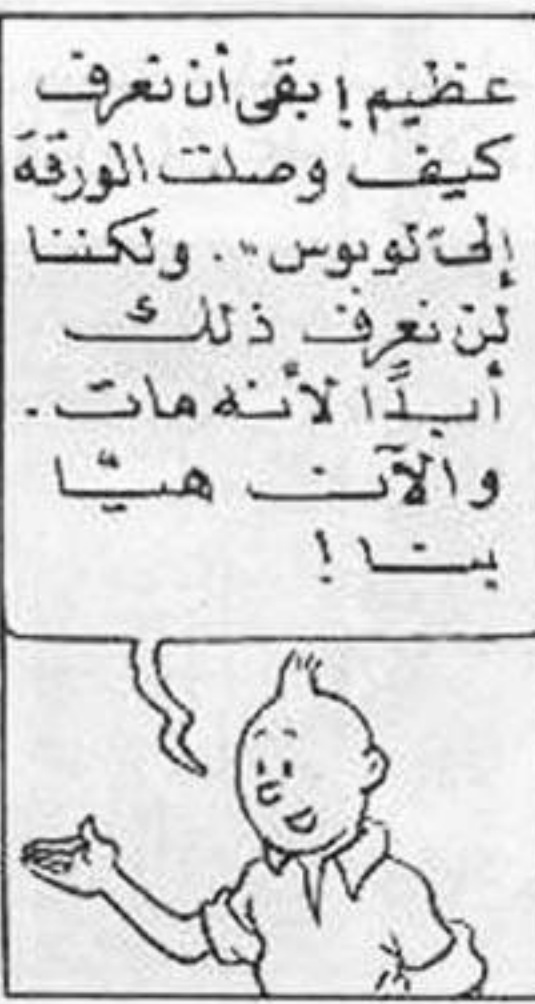 عظيم! بقي أن نعرف
كيف وصلت الورقة
إلى لوبوس.. ولكننا
لن نعرف ذلك
أبدًا لأنه مات.
والآن هيّا
بنا!